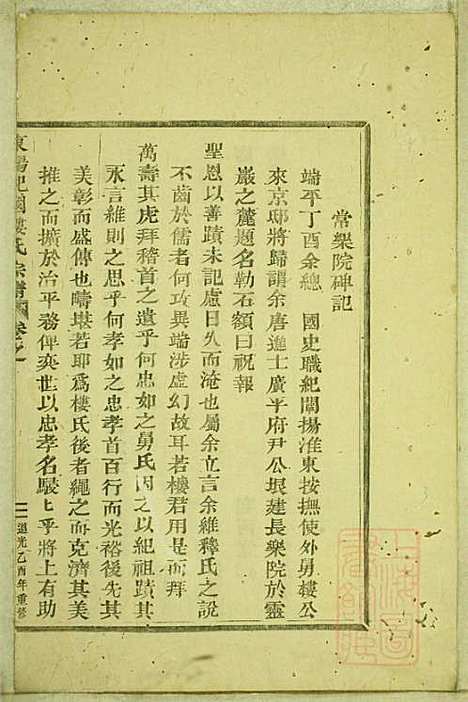 常樂院碑記
端平丁酉余總 國史職紀闡揚淮東按撫使外舅樓公
來京邸將歸謂余唐進士廣平府尹公垠建長樂院於靈
巖之麓題名勒石額曰祝報
聖恩以善蹟未記慮日久而淹也屬余立言余維釋氏之說
不齒於儒者何攻異端涉虛幻故耳若樓君用是而拜
萬壽其虎拜稽首之遺乎何忠如之舅氏因之以紀祖蹟其
永言維則之思乎何孝如之忠孝首百行而光裕後先其
美彰而盛傳也疇堪若耶爲樓氏後者繩之而克濟其美
推之而擴於治平務俾奕世以忠孝名駸駸乎將上有助
東陽杞國樓氏宗譜 卷之一
道光乙酉年重修